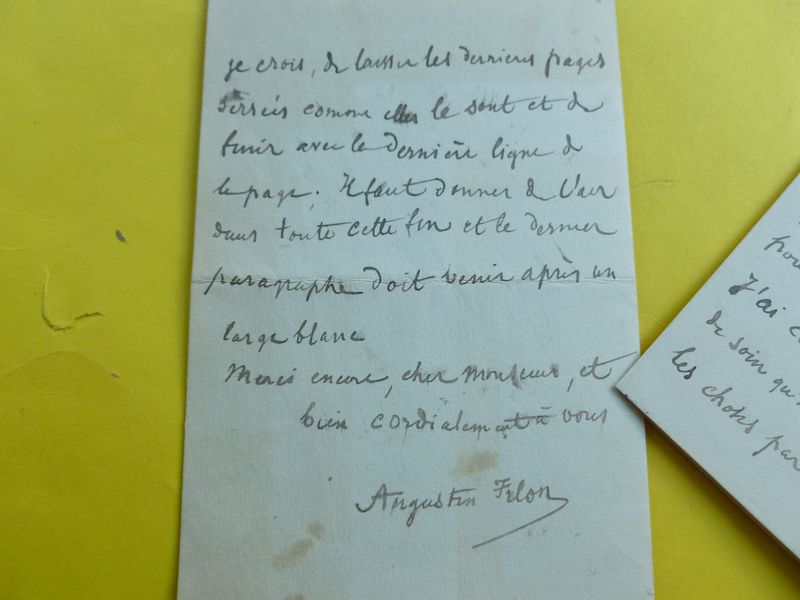 je crois, de laisser les dernieres pages
serrées comme elles le sont et de
finir avec la dernière ligne de
la page. Il faut donner de l'air
dans toute cette fin et le dernier
paragraphe doit venir après un
large blanc
Merci encore, cher Monsieur, et
bien cordialement à vous
Augustin Filon
pour
J'ai
de soin qu'
les choses par